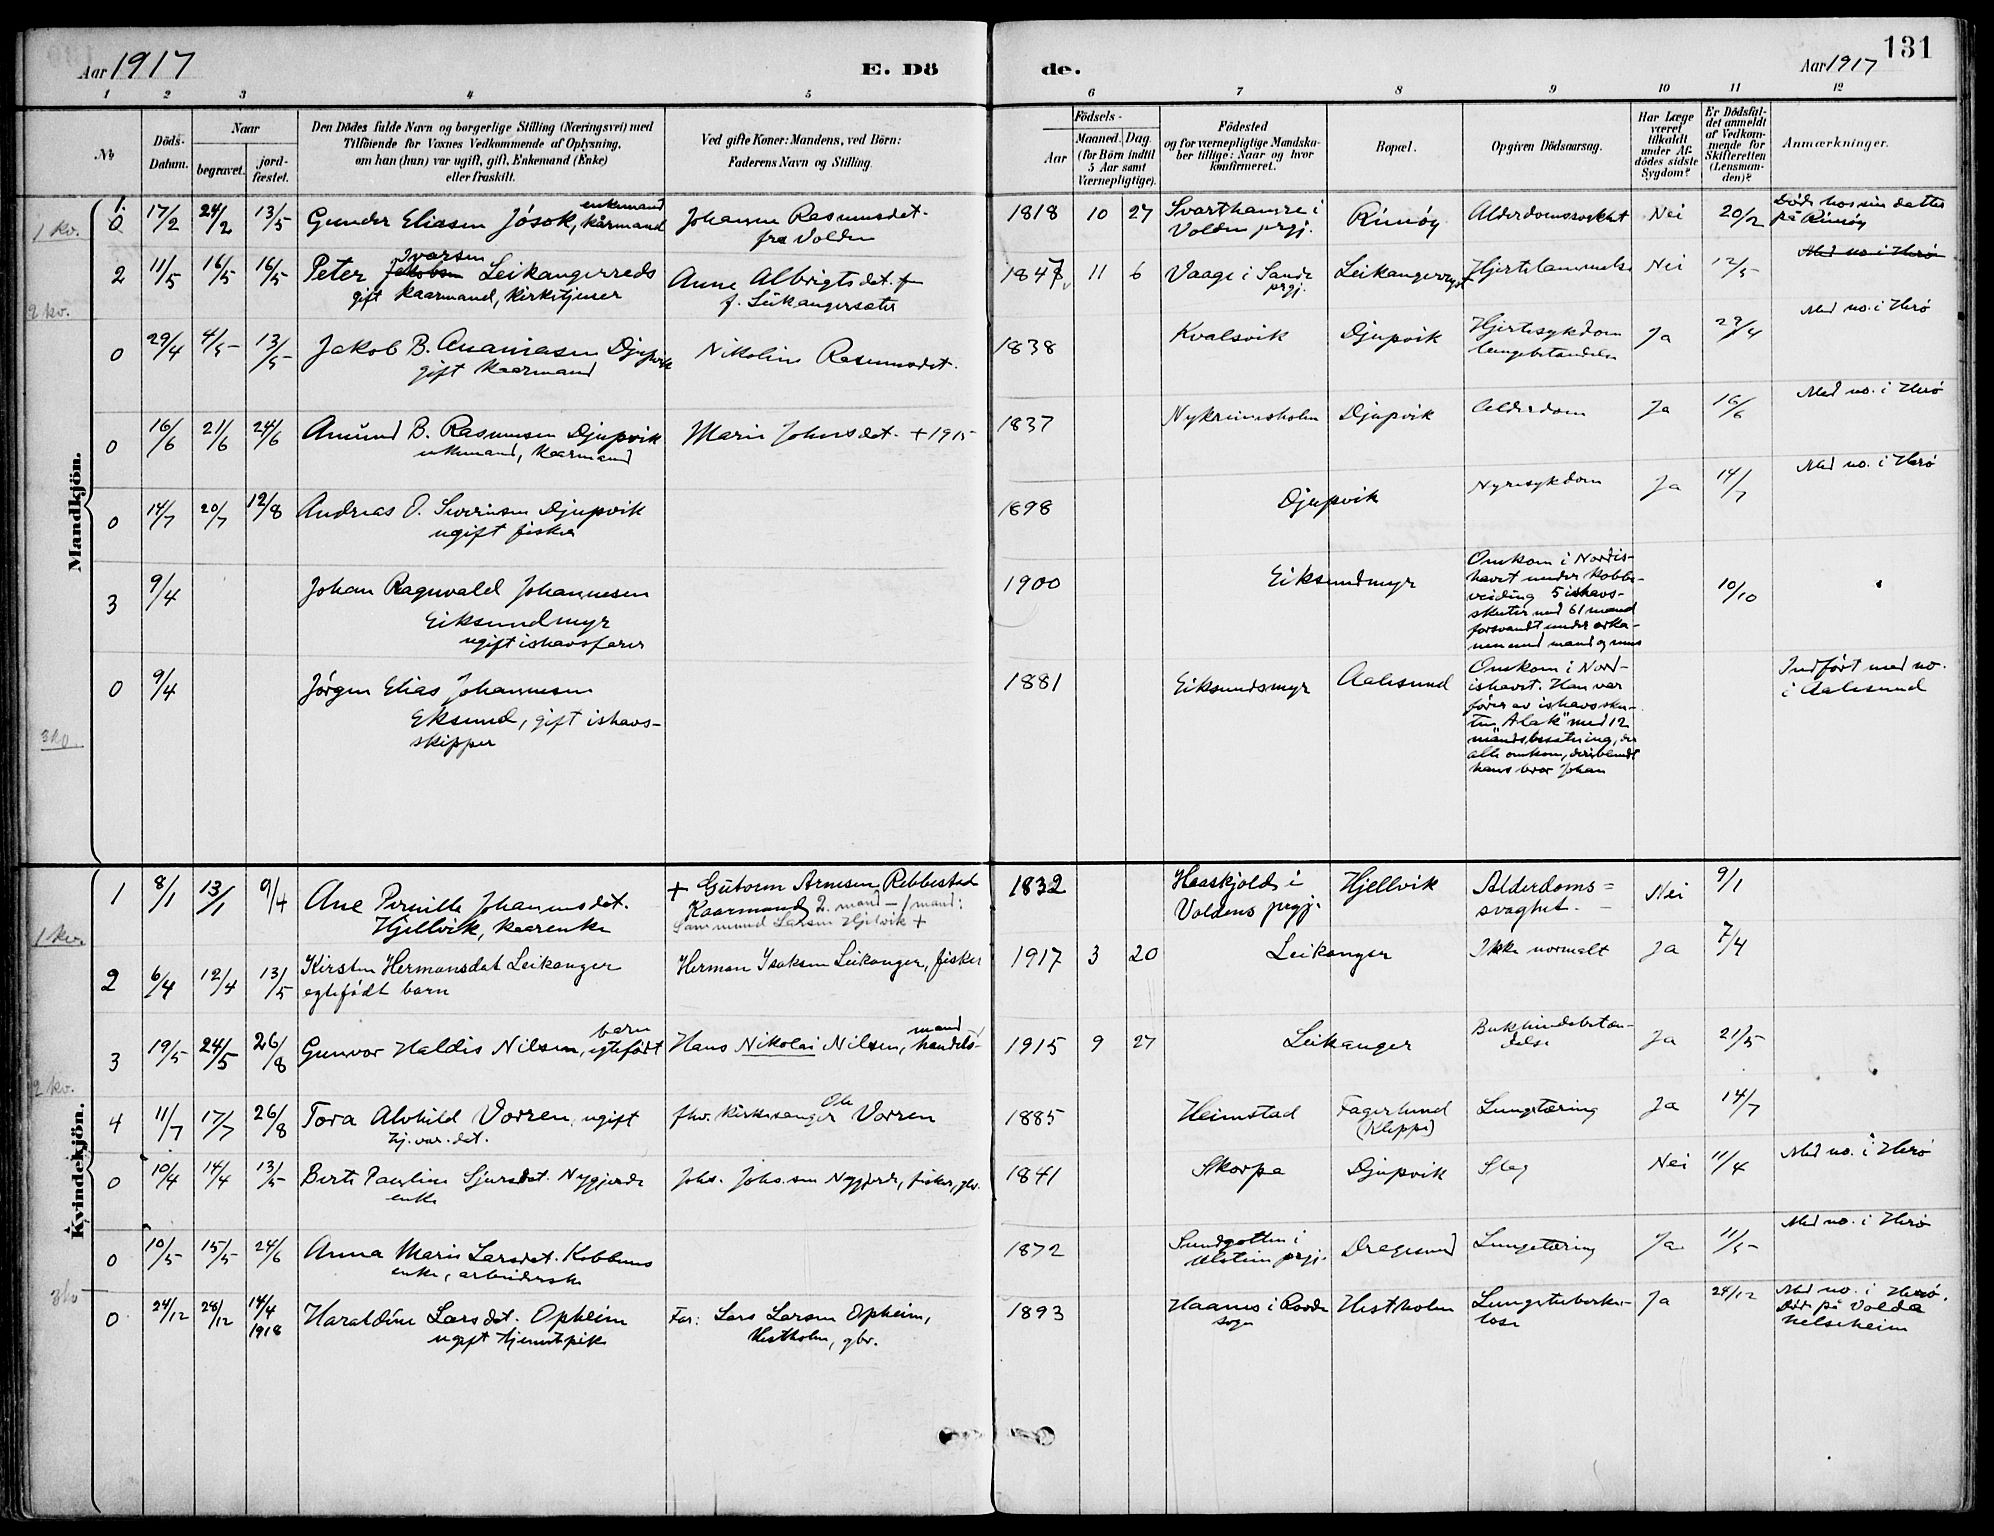 Aar 1917
E. Dö
de.
Aar 1917
131
1 2 3 4 5 6 7 8 9 10 11 12
No
Döds-
Datum.
Naar
begravet.
jord-
fæstet.
Den Dödes fulde Navn og borgerlige Stilling (Næringsvei) med
Tilföiende for Voxnes Vedkommende af Oplysning,
om han (hun) var ugift, gift, Enkemand (Enke)
eller fraskilt.
Ved gifte Koner: Mandens, ved Börn:
Faderens Navn og Stilling.
Födsels-
Aar
Maaned.
Dag.
(for Börn indtil
5 Aar samt
Værnepligtige).
Födested
og for værnepligtige Mandska-
ber tillige: Naar og hvor
konfirmeret.
Bopæl.
Opgiven Dödsaarsag.
Har Læge
været
tilkaldt
under Af-
dödes sidste
Sygdom?
Er Dödsfal-
det anmeldt
af Vedkom-
mende for
Skifteretten
(Lensman-
den)?
Anmærkninger.
Mandkjön.
1 kv.
1.
0 17/2 24/2 13/5 Gunder Eliasen Jósok, enkemand kårmand
Johanne Rasmusdet.
fra Volden
1818 10 27 Svarthamre i
Volden prgj.
Rimöy Alderdomssvakhet Nei 20/2
Död hos sin datter
på Rimöy
2 11/5 16/5 16/5 Peter Jakobsen Ivarsen Leikangerreds
gift kaarmand, kirketjener
Anne Albrigtsdet.
f. Leikangersæter
1847 11 6 Vaage i Sande
prgj.
Hjertelammelse Nei 12/5 Med no. i Herö
2 kv.
0 29/4 4/5 13/5 Jakob B. Ananiasen Djupvik
gift kaarmand
Nikoline Rasmusdet.
1838 Kvalsvik Djupvik Hjertesykdom
lungebetændelse
Ja 29/4 Med no. i Herö
0 16/6 21/6 24/6 Amund B. Rasmusen Djupvik
enkemand, kaarmand
Marie Johnsdet. + 1915
1837 Nykreimsholm Djupvik Alderdom Ja 16/6 Med no. i Herö
0 14/7 20/7 12/8 Andreas O. Severinsen Djupvik
ugift fisker
1898 Djupvik Nyresykdom Ja 14/7 Med no. i Herö
3 9/4 Johan Ragnvald Johannesen
Eiksundmyr
ugift ishavsfarer
1900 Eiksundmyr
Omkom i Nordis-
havet under kobbe-
veiding 5 ishavs-
skuter med 61 mand
forsvandt under orka-
nen med mand og mus
10/10
0 9/4 Jörgen Elias Johannesen
Eksund, gift ishavs-
skipper
1881 Eiksundsmyr Aalesund
Omkom i Nord-
ishavet. Han var
förer av ishavssku-
ten "Alak" med 12
mandsbesætning, der
alle omkom, deriblandt
hans bror Johan
Indfört med no.
i Aalesund
Kvindekjön.
1 8/1 13/1 9/4 Ane Pernille Johannesdet.
Hjellvik, kaarenke
+ Gutorm Arnesen Rebbestad
Kaarmand 2. mand - 1 mand:
Larsen Hjelvik +
1832 Haaskjold i
Voldens prgj.
Hjellvik Alderdoms=
svaghet.
Nei 9/1
1 kv.
2 6/4 12/4 13/5 Kirsten Hermansdat Leikanger
egtefödt barn
Herman Isaksen Leikanger, fisker
1917 3 20 Leikanger Ikke normalt Ja 7/4
3 19/5 24/5 26/8 Gunvor Haldis Nilsen, barn egtefödt
Hans Nikolai Nilsen, handels- mand
1915 9 27 Leikanger Bukhindebetæn-
delse
Ja 21/5
2 kv.
4 11/7 17/7 26/8 Tora Alvhild Vorren, ugift
fhv. kirkesanger Ole Vorren
1885 Heimstad Fagerlund
(Kleppe)
Lungetæring Ja 14/7
0 10/4 14/4 13/5 Berte Pauline Sjursdet. Nygjerde
enke
Johs. Johs.sen Nygjerde, fisker, gbr.
1841 Skorpa Djupvik Slag Nei 11/4 Med no. i Herö
0 10/5 15/5 24/6 Anna Marie Larsdet. Kobbenes
enke, arbeiderske
1872 Sundgotten i
Ulstein prgj.
Dragesund Lungetæring Ja 11/5 Med no. i Herö
0 24/12 28/12 14/4
1918
Haraldine Larsdet. Opheim
ugift tjenestpike
Far: Lars Larsen Opheim,
Hestholm, gbr.
1893 Haanes i
sogn
Hestholm Lungetuberku-
lose
Ja 24/12
Med no. i Herö.
Död på Volda
helseheim